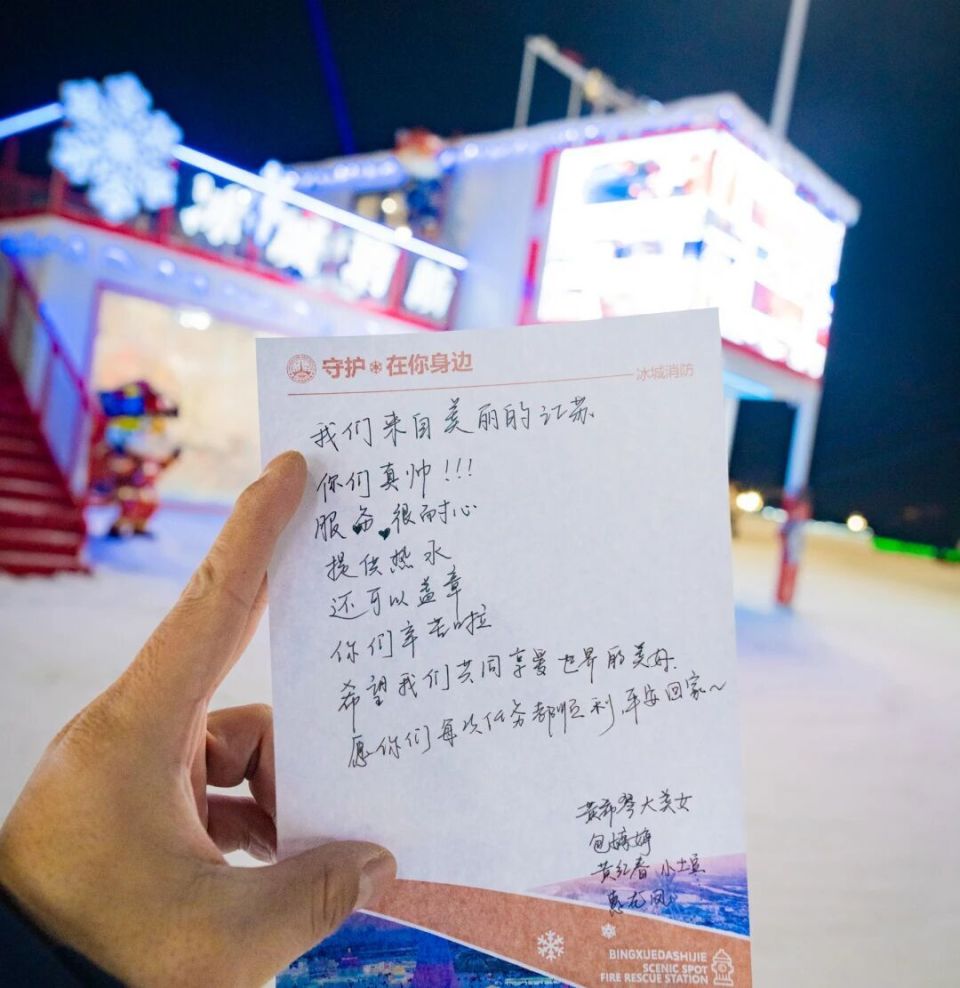 守护 在你身边
冰城消防
我们来自美丽的江苏
你们真帅!!!
服务 很耐心
提供热水
还可以盖章
你们辛苦啦
希望我们共同享受世界的美好.
愿你们每次任务都顺利,平安回家~
大美女
包婷婷
黄红春 小土豆
BINGXUEDASHIJIE
SCENIC SPOT
FIRE RESCUE STATION